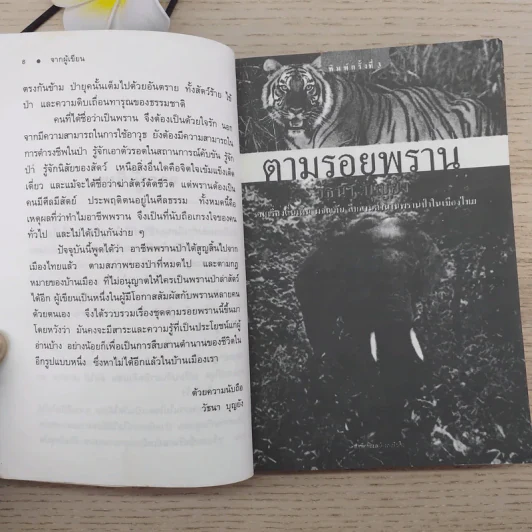 8 ● จากผู้เขียน
ตรงกันข้าม ป่ายุคนั้นเต็มไปด้วยอันตราย ทั้งสัตว์ร้าย ไข้
ป่า และความดิบเถื่อนทารุณของธรรมชาติ
คนที่ได้ชื่อว่าเป็นพราน จึงต้องเป็นด้วยใจรัก นอก
จากมีความสามารถในการใช้อาวุธ ยังต้องมีความสามารถใน
การดำรงชีพในป่า รู้จักเอาตัวรอดในสถานการณ์คับขัน รู้จัก
ป่า รู้จักนิสัยของสัตว์ เหนือสิ่งอื่นใดคือจิตใจเข้มแข็งเด็ด
เดี่ยว และแม้จะได้ชื่อว่าฆ่าสัตว์ตัดชีวิต แต่พรานต้องเป็น
คนมีศีลมีสัตย์ ประพฤติตนอยู่ในศีลธรรม ทั้งหมดนี้คือ
เหตุผลที่ว่าทำไมอาชีพพราน จึงเป็นที่นับถือเกรงใจของคน
ทั่วไป และไม่ได้เป็นกันง่าย ๆ
ปัจจุบันนี้พูดได้ว่า อาชีพพรานป่าได้สูญสิ้นไปจาก
เมืองไทยแล้ว ตามสภาพของป่าที่หมดไป และตามกฎ
หมายของบ้านเมือง ที่ไม่อนุญาตให้ใครเป็นพรานป่าล่าสัตว์
ได้อีก ผู้เขียนเป็นหนึ่งในผู้มีโอกาสสัมผัสกับพรานหลายคน
ด้วยตนเอง จึงได้รวบรวมเรื่องชุดตามรอยพรานนี้ขึ้นมา
โดยหวังว่า มันคงจะมีสาระและความรู้ที่เป็นประโยชน์แก่ผู้
อ่านบ้าง อย่างน้อยก็เพื่อเป็นการสืบสานตำนานของชีวิตใน
อีกรูปแบบหนึ่ง ซึ่งหาไม่ได้อีกแล้วในบ้านเมืองเรา
ด้วยความนับถือ
วัธนา บุญยัง
พิมพ์ครั้งที่ 3
ตามรอยพราน
วัธนา บุญยัง